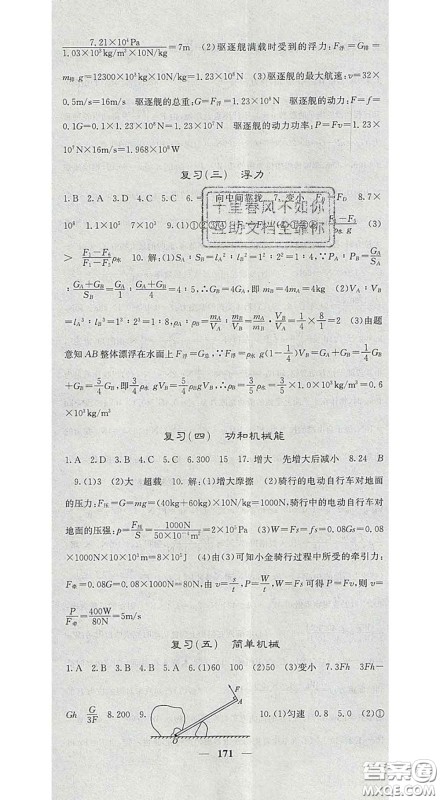 7.21×10⁴Pa / 1.03×10³kg/m³×10N/kg =7m (2)驱逐舰满载时受到的浮力:F浮=G排=
m排g=12300×10³kg×10N/kg=1.23×10⁸N (3)驱逐舰的最大航速:v=32×
0.5m/s=16m/s 驱逐舰的总重:G=F浮=1.23×10⁸N 驱逐舰的动力:F=f=
0.1G=0.1×1.23×10⁸N=1.23×10⁷N 驱逐舰的动力功率:P=Fv=1.23×
10⁷N×16m/s=1.968×10⁸W
复习(三) 浮力
1.B 2.A 3.D 4.C 5.B 6. 向中间靠拢 7.变小 8.7×
10⁸ 1.1×10⁵ 7×10⁵ 9.(1)
> ρ水 10.解:(1)S_A∶S_B=l_A²∶l_B²=1²∶2²=1∶4,∵P_A∶P_B=G_A/S_A∶
(G_A+G_B)/S_B=G_A/1∶(G_A+G_B)/4=1∶1,∴G_B=3G_A
(2)V_A∶V_B
=l_A³∶l_B³=1³∶2³=1∶8,
(3)由题
意知AB整体漂浮在水面上F浮=G总,∵F浮=ρ水g(1-1/4)V_B=G_A+G_B=1/4G_B
+G_B=5/4G_B,即3/4ρ水gV_B=5/4ρ_BgV_B,∴ρ_B=3/5ρ水=3/5×1.0×10³kg/m³=0.6
×10³kg/m³
复习(四) 功和机械能
1.A 2.D 3.B 4.C 5.C 6.300 15 17.增大 先增大后减小 8.24 B
9.(1)3 (2)大 超载 10.解:(1)增大摩擦 (2)骑行的电动自行车对地面
的压力:F压=G=mg=(40kg+60kg)×10N/kg=1000N,骑行中的电动自行车对
地面的压强:p=F压/S=1000N/(50×10⁻⁴m²)=2×10⁵Pa (3)W=Fs=fs=0.08Gs=0.08
×1000N×10×10³m=8×10⁵J (4)由(3)可知小金骑行过程中所受的牵引力:
F牵=0.08G=0.08×1000N=80N,由v=s/t,P=W/t,W=Fs可得P=Fv,则v=
P/F牵=400W/80N=5m/s
复习(五) 简单机械
1.A 2.B 3.A 4.C 5.A 6.(1)60 100 (2)50 (3)变小 7.3Fh 3Fh-
Gh G/3F 8.200 9. F A O 10.(1)匀速 0.8 5.0 (2)①
171
千里春风不如你
互助文档全靠你
答案圈
MXQE.COM